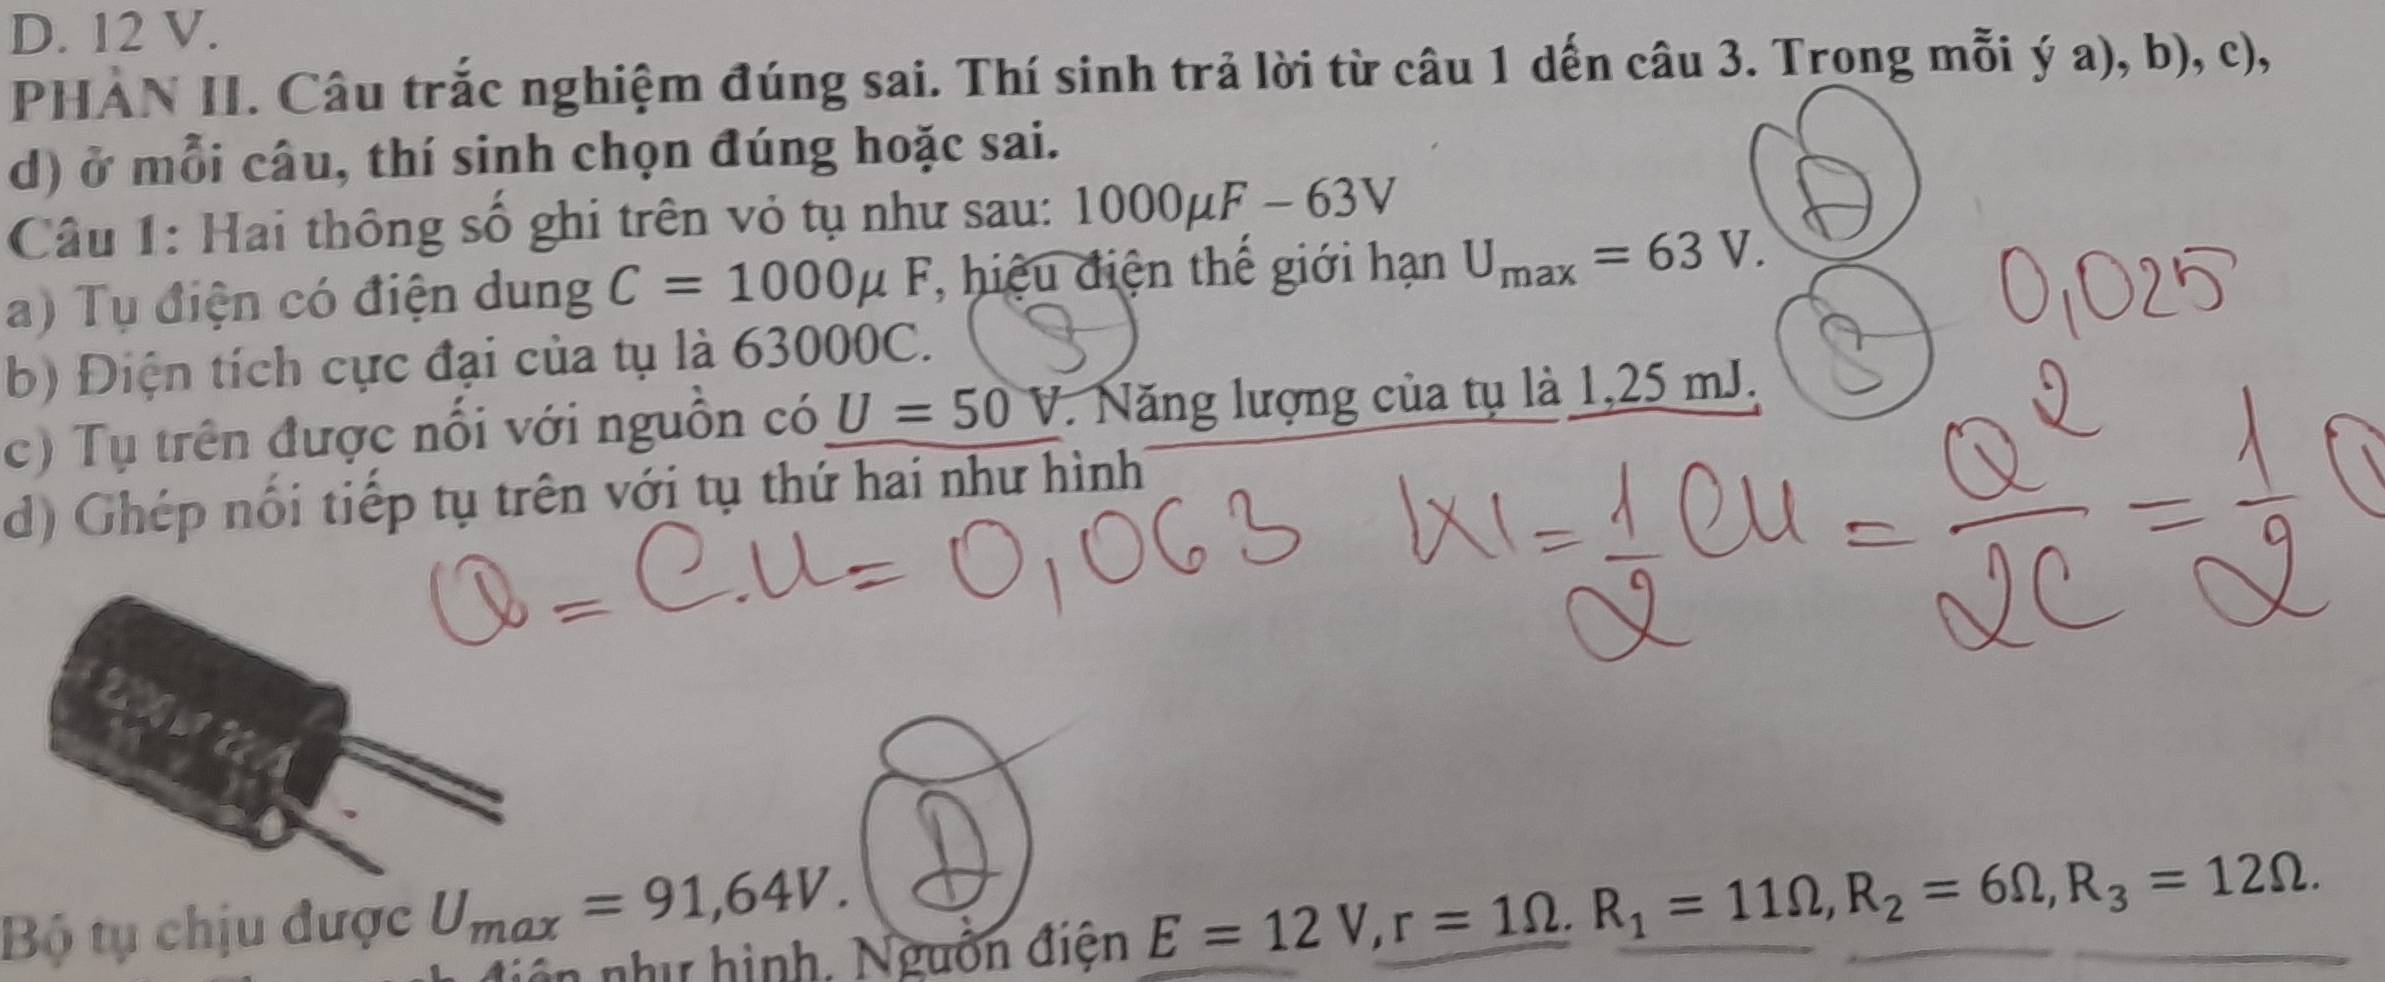 D. 12 V.
PHẦN II. Câu trắc nghiệm đúng sai. Thí sinh trả lời từ câu 1 dến câu 3. Trong mỗi ý a), b), c),
d) ở mỗi câu, thí sinh chọn đúng hoặc sai.
Câu 1: Hai thông số ghi trên vỏ tụ như sau: 1000μF – 63V
a) Tụ điện có điện dung C = 1000μ F, hiệu điện thế giới hạn U_max = 63 V. Đ
0,025
b) Điện tích cực đại của tụ là 63000C. S
c) Tụ trên được nối với nguồn có U = 50 V. Năng lượng của tụ là 1,25 mJ. S
d) Ghép nối tiếp tụ trên với tụ thứ hai như hình
Q = C.U = 0,063
W = 1/2 CU = Q²/2C = 1/2
Bộ tụ chịu được U_max = 91,64V. Đ
điện như hình. Nguồn điện E = 12 V, r = 1Ω. R₁ = 11Ω, R₂ = 6Ω, R₃ = 12Ω.